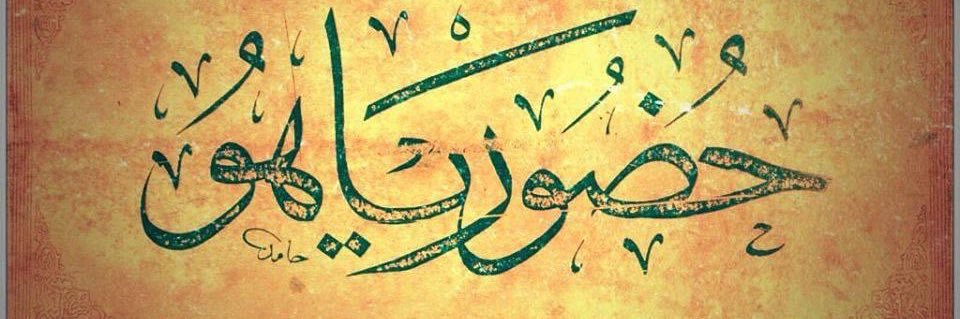 حُضُور يا هُو
حامد